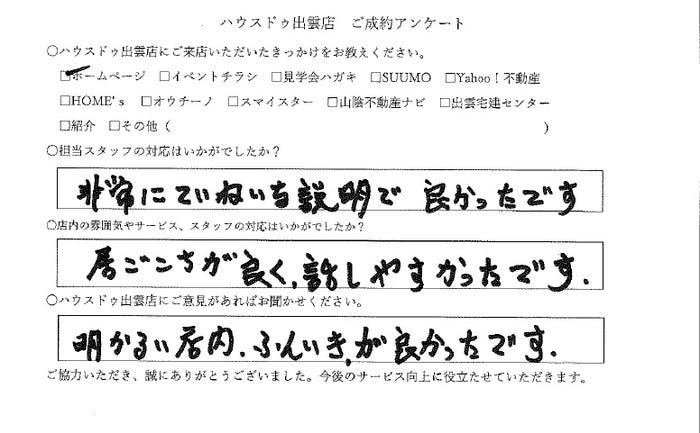 ハウスドゥ出雲店 ご成約アンケート
○ハウスドゥ出雲店にご来店いただいたきっかけをお教えください。
☑ホームページ □イベントチラシ □見学会ハガキ □SUUMO □Yahoo!不動産
□HOME's □オウチーノ □スマイスター □山陰不動産ナビ □出雲宅建センター
□紹介 □その他( )
○担当スタッフの対応はいかがでしたか?
非常にていねいな説明で 良かったです
○店内の雰囲気やサービス、スタッフの対応はいかがでしたか?
居ごこちが良く、話しやすかったです.
○ハウスドゥ出雲店にご意見があればお聞かせください。
明かるい店内.ふんいきが良かったです.
ご協力いただき、誠にありがとうございました。今後のサービス向上に役立たせていただきます。